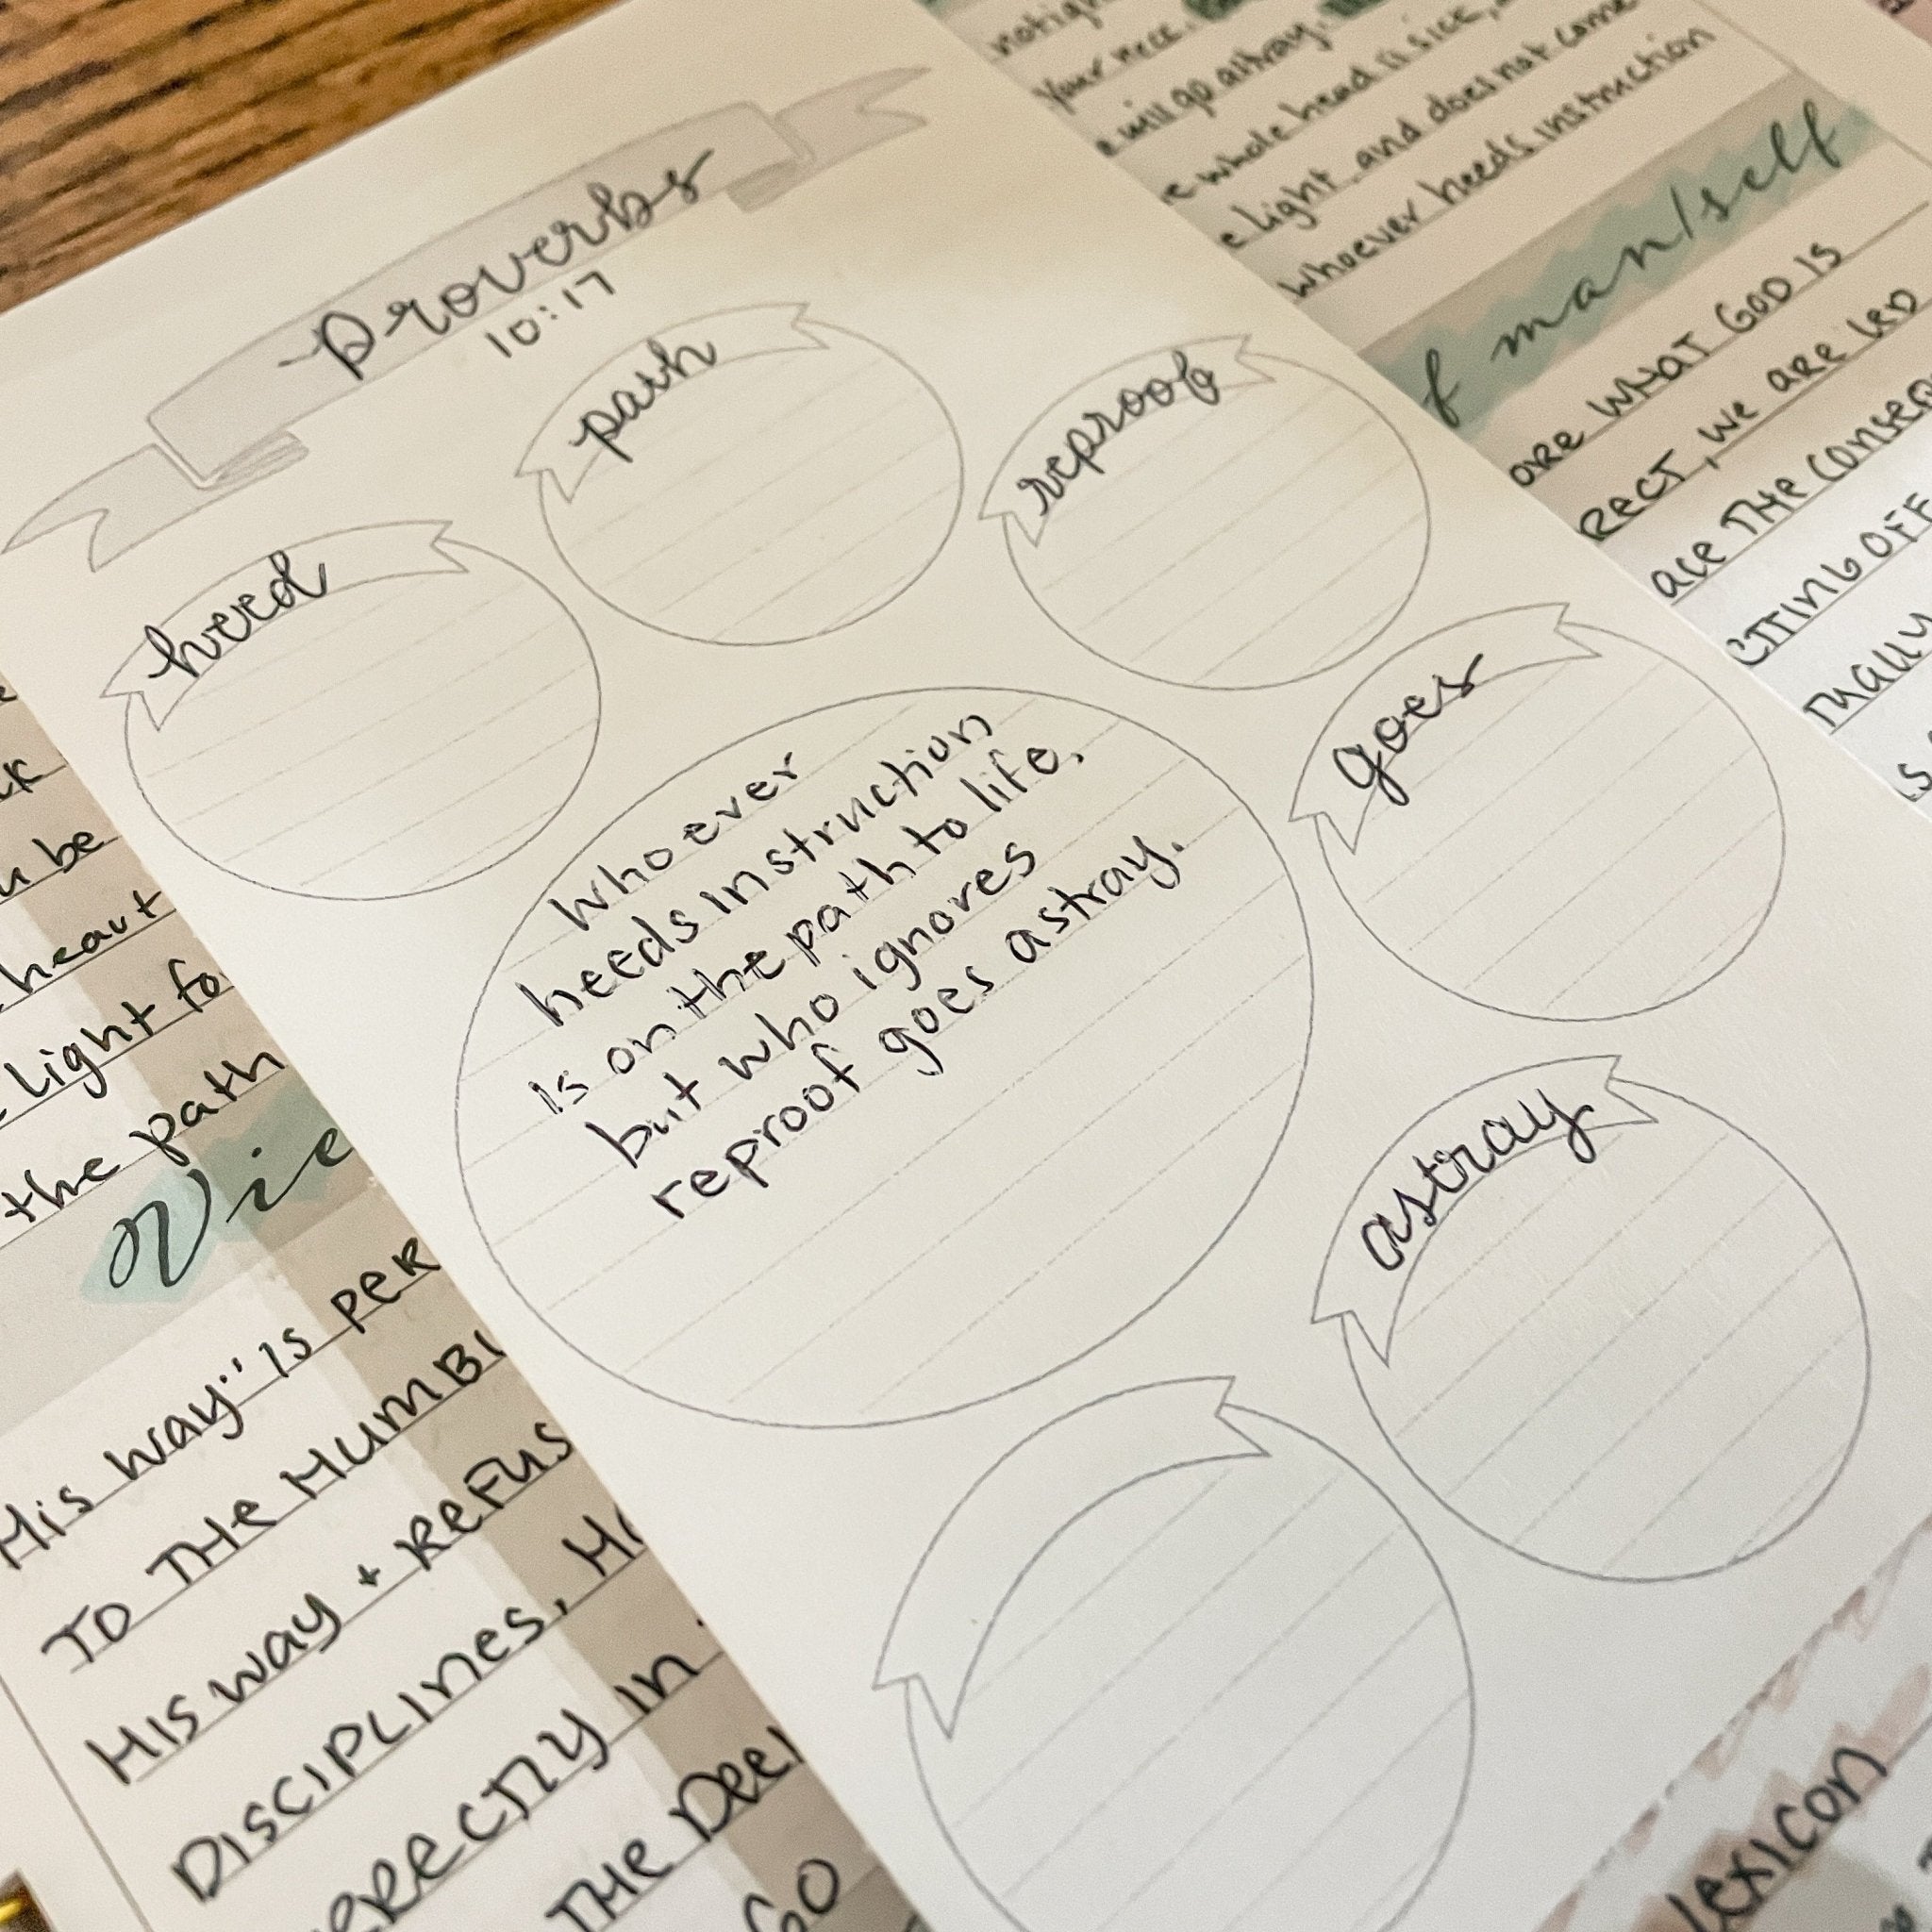 Proverbs
10:17
heed
path
reproof
goes
astray
Whoever
heeds instruction
is on the path to life,
but who ignores
reproof goes astray.
will go astray.
whole head is sick,
light and does not come
Whoever heeds instruction
f man/self
ore WHAT GOD IS
RECT, we are LED
ace THe CONSEQ
CTTING OFF
TUALLY
u be
heart
light fo
the path
Vie
His way" is PER
TO THe HUMBL
HIS way + REFUS
DISCIPLINES, HA
RRECTLY IN
THe Deel
GO
lexicon